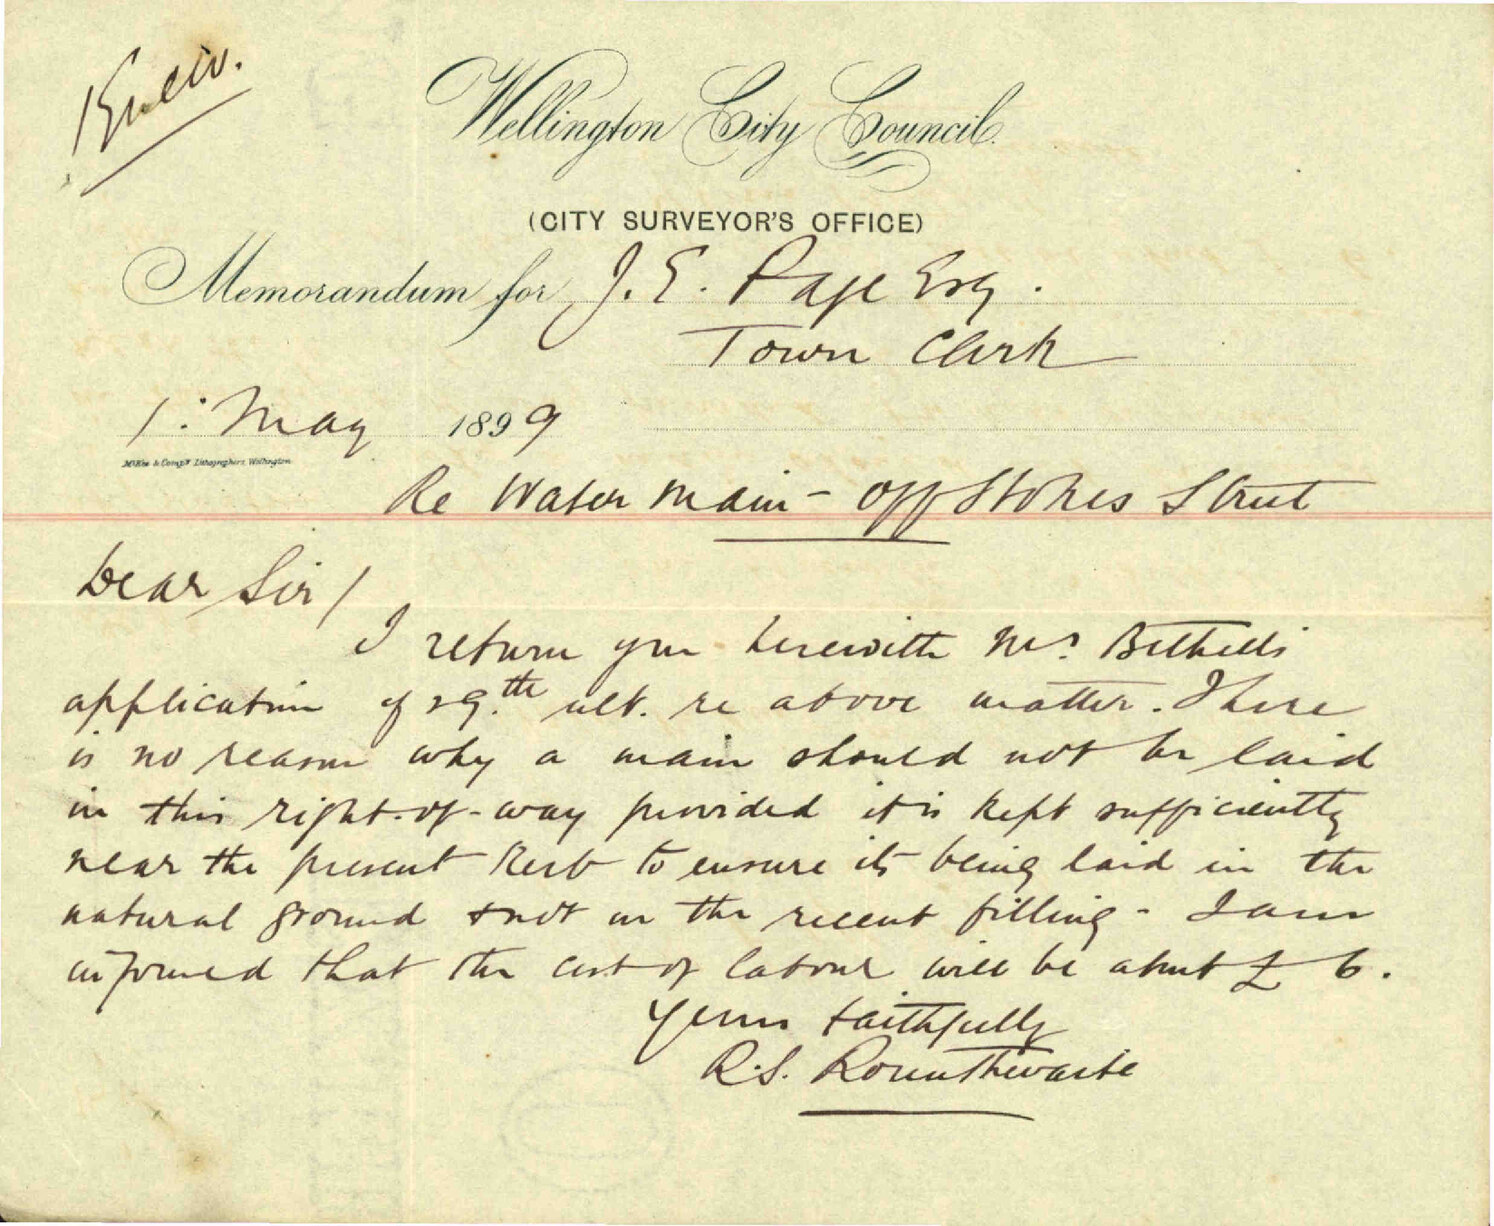 Wellington City Council.
(CITY SURVEYOR'S OFFICE)
Memorandum for J. E. Page Esq.
Town Clerk
1: May 1899
McKee & Compy Lithographers Wellington
Re Water Main - off Stokes Street
Dear Sir/
I return you herewith Mr. Bethell's
application of 29.th ult. re above matter. There
is no reason why a main should not be laid
in this right-of-way provided it is kept sufficiently
near the present Kerb to ensure its being laid in the
natural ground & not in the recent filling - I am
informed that the cost of labour will be about £ 6.
Yours faithfully
R.S. Rounthwaite